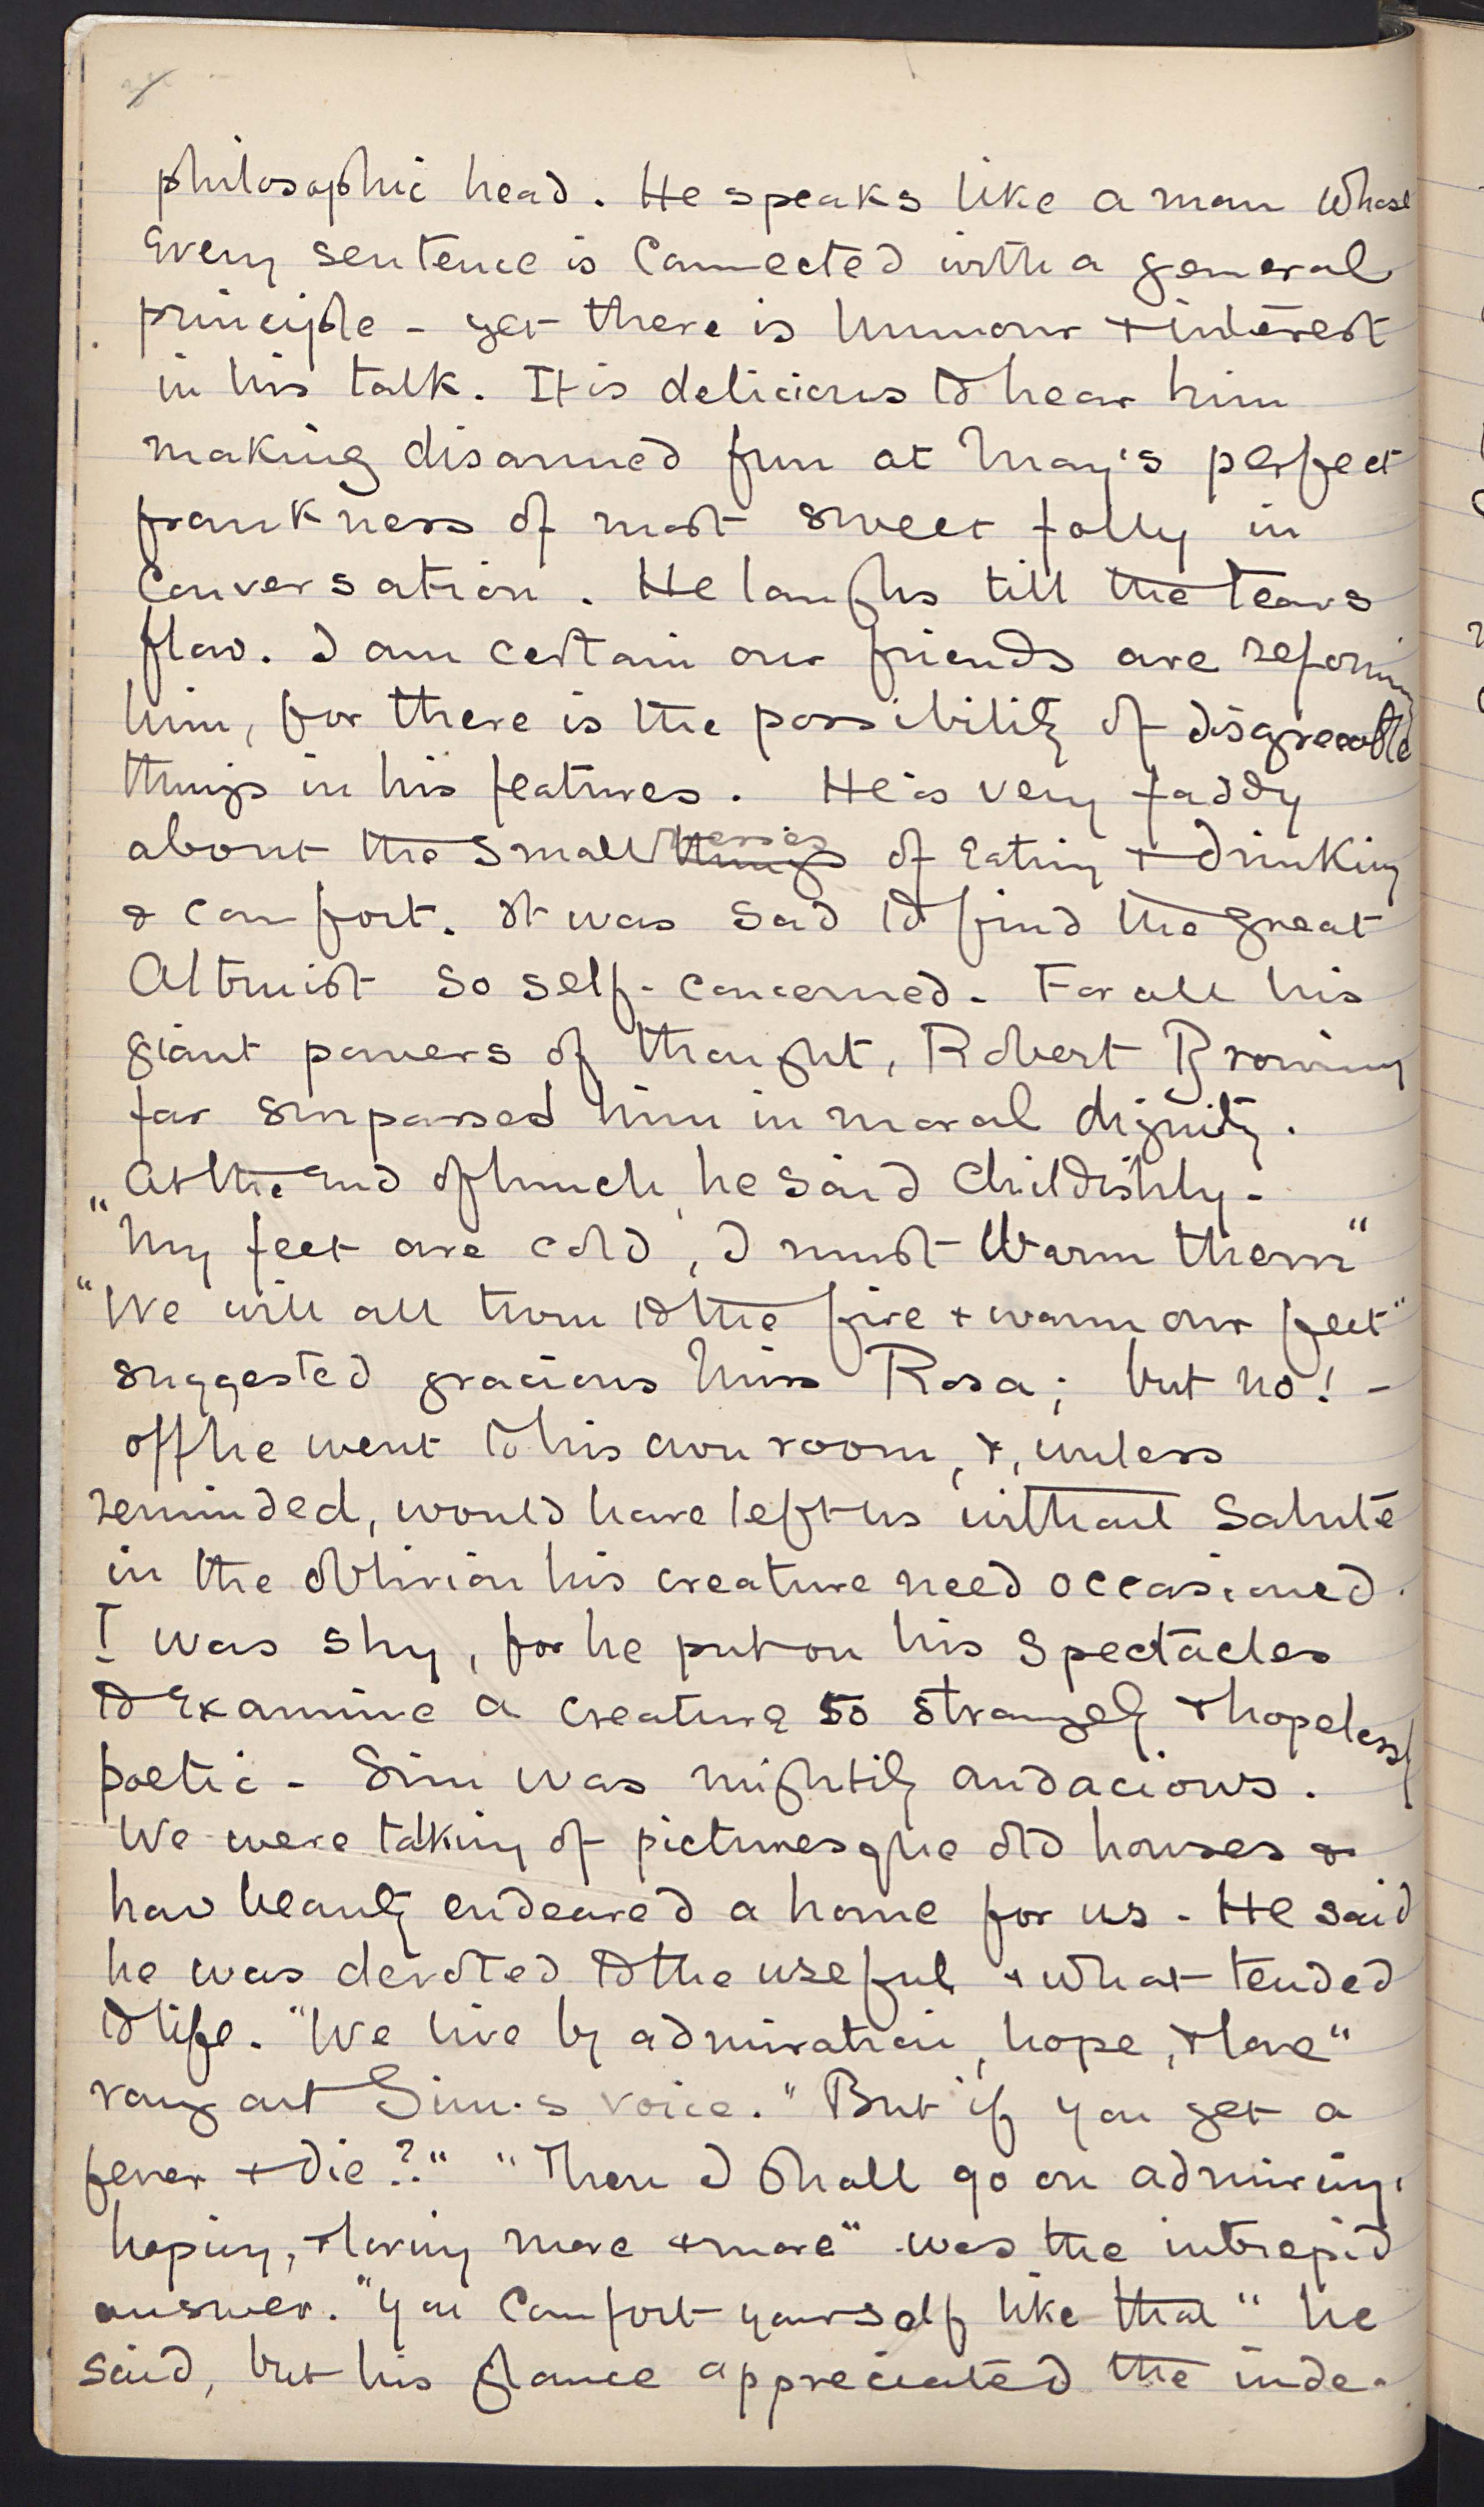 philosophic head. He speaks like a man whose
Every sentence is Connected with a general
principle - yet there is humour + interest
in his talk. It is delicious to hear him
making disarmed fun at May's perfect
frankness of most sweet folly in
Conversation. He laughs till the tears
flow. I am certain our friends are reforming
him, for there is the possibility of disagreeable
things in his features. He is very faddy
about the small nesses things of Eating + drinking
& comfort. It was sad to find the great
Altruist so self-concerned. For all his
giant powers of thought, Robert Browning
far surpassed him in moral dignity.
At the End of lunch, he said Childishly -
"My feet are cold, I must Warm them"
"We will all turn to the fire + warm our feet"
suggested gracious Miss Rosa; but no! -
off he went to his own room, +, unless
reminded, would have left us without Salute
in the oblivion his creature need occasioned.
I was shy, for he put on his spectacles
to Examine a creature so strangely + hopelessly
poetic - Sim was mightily audacious.
We were talking of picturesque old houses &
how beauty endeared a home for us - He said
he was devoted to the useful + what tended
to life. "We live by admiration, hope, + love"
rang out Sim's voice. "But if you get a
fever + die?" "Then I shall go on admiring,
hoping, + loving more + more" was the intrepid
answer. "You Comfort yourself like that" he
said, but his glance appreciated the inde-